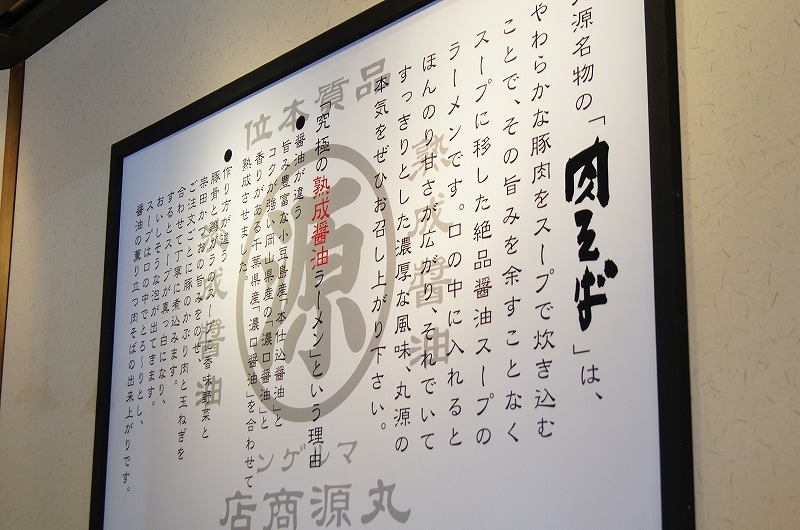 源名物の「肉そば」は、
やわらかな豚肉をスープで炊き込む
ことで、その旨みを余すことなく
スープに移した絶品醤油スープの
ラーメンです。口の中に入れると
ほんのり甘さが広がり、それでいて
すっきりとした濃厚な風味、丸源の
本気をぜひお召し上がり下さい。
「究極の熟成醤油ラーメン」という理由
●醤油が違う
旨み豊富な小豆島産「本仕込醤油」と
コクが強い岡山県産の「濃口醤油」と
香りがある千葉県産「濃口醤油」を合わせて
熟成させました。
●作り方が違う
豚骨と鶏ガラのスープに香味野菜と
宗田かつおの旨みをのせ、
ご注文ごとに豚のかぶり肉と玉ねぎを
合わせて丁寧に煮込みます。
するとスープが真っ白になり、
おいしそうな泡が出てきます。
スープは口の中でとろ〜りとし、
醤油の薫り立つ肉そばの出来上がりです。
品質本位
熟成醤油
源
成醤油
マルゲン
丸源商店